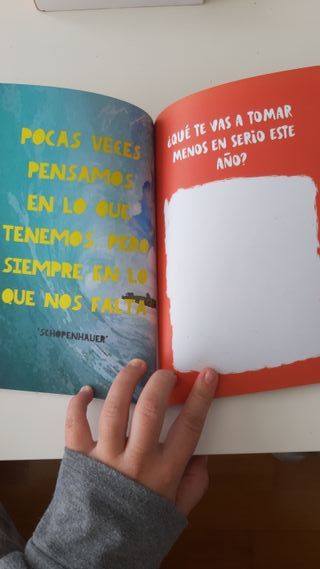 POCAS VECES
PENSAMOS
EN LO QUE
TENEMOS, PERO
SIEMPRE EN LO
QUE NOS FALTA
'SCHOPENHAUER'
¿QUÉ TE VAS A TOMAR
MENOS EN SERIO ESTE
AÑO?